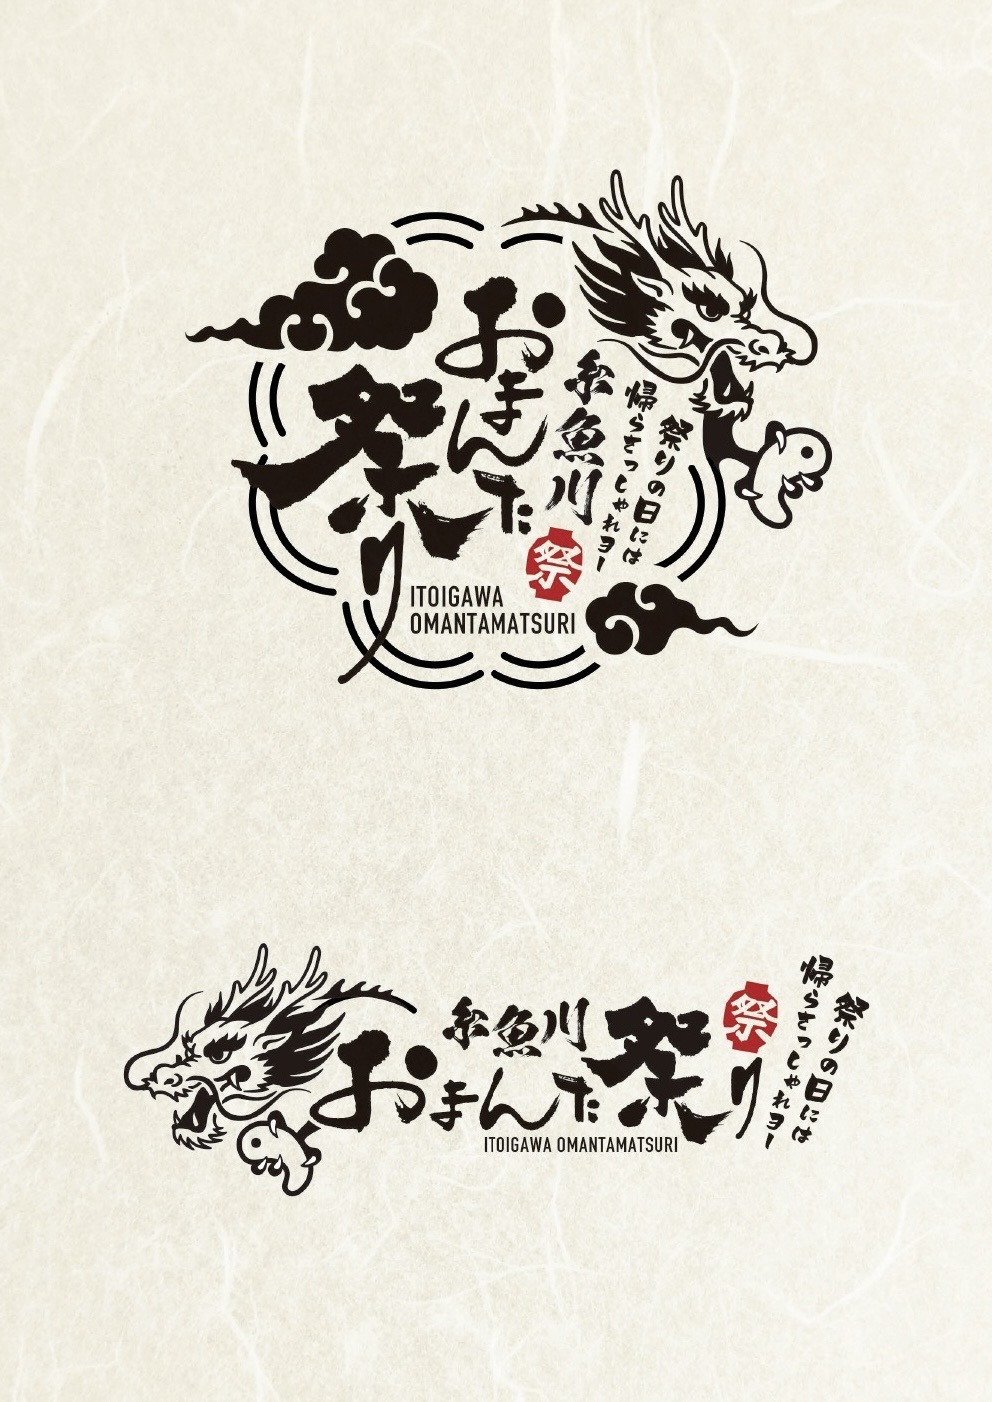 糸魚川
おまんた
祭り
祭りの日には
帰らさっしゃれヨー
祭
ITOIGAWA
OMANTAMATSURI
糸魚川
おまんた祭り
ITOIGAWA OMANTAMATSURI
祭
祭りの日には
帰らさっしゃれヨー